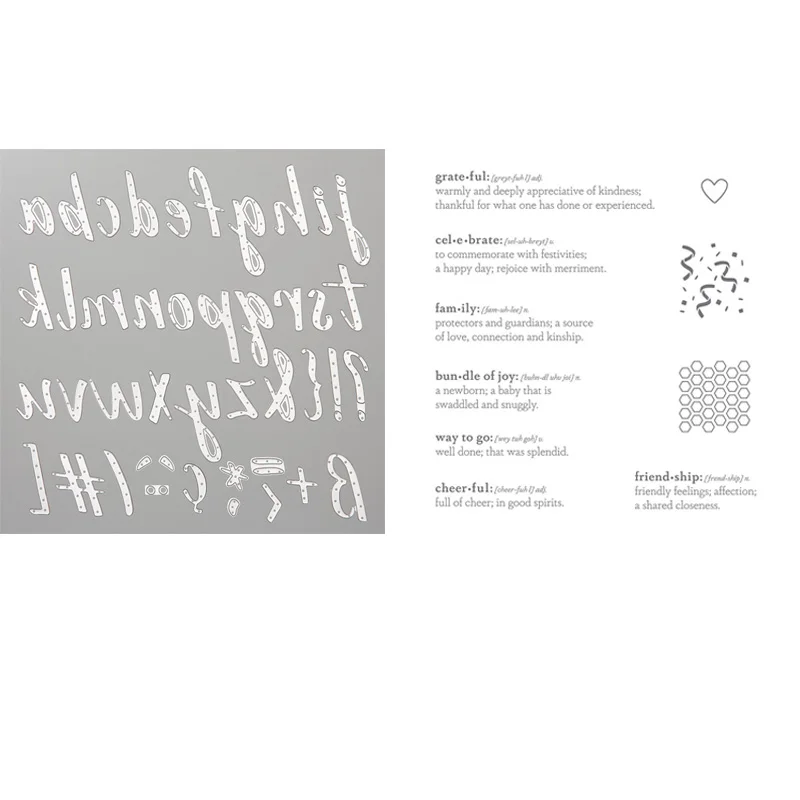 a b c d e f g h i j
k l m n o p q r s t
u v w x y z & ! ?
grate•ful: [greyt-fuhl] adj.
warmly and deeply appreciative of kindness;
thankful for what one has done or experienced.
cel•e•brate: [sel-uh-breyt] v.
to commemorate with festivities;
a happy day; rejoice with merriment.
fam•ily: [fam-uh-lee] n.
protectors and guardians; a source
of love, connection and kinship.
bun•dle of joy: [buhn-dl uhv joi] n.
a newborn; a baby that is
swaddled and snuggly.
way to go: [wey tuh goh] v.
well done; that was splendid.
cheer•ful: [cheer-fuhl] adj.
full of cheer; in good spirits.
friend•ship: [frend-ship] n.
friendly feelings; affection;
a shared closeness.